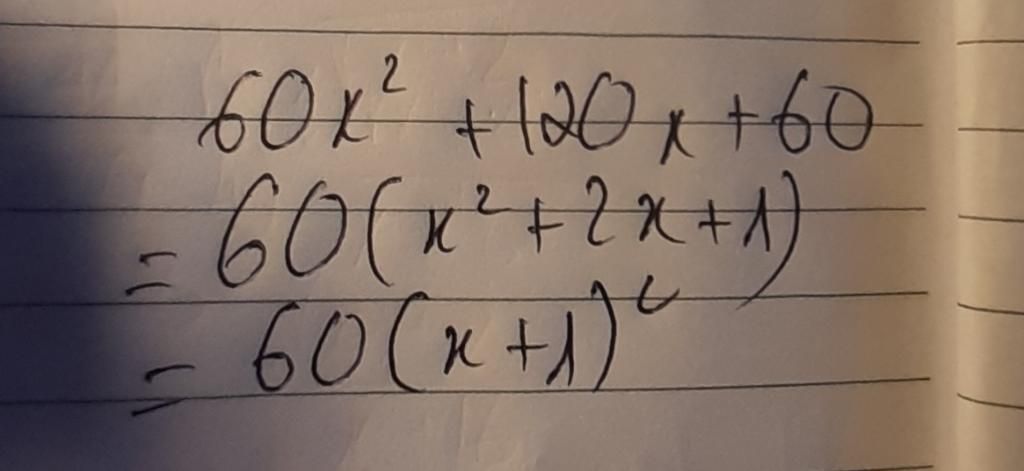 60x² + 120x + 60
= 60(x² + 2x + 1)
= 60(x + 1)²